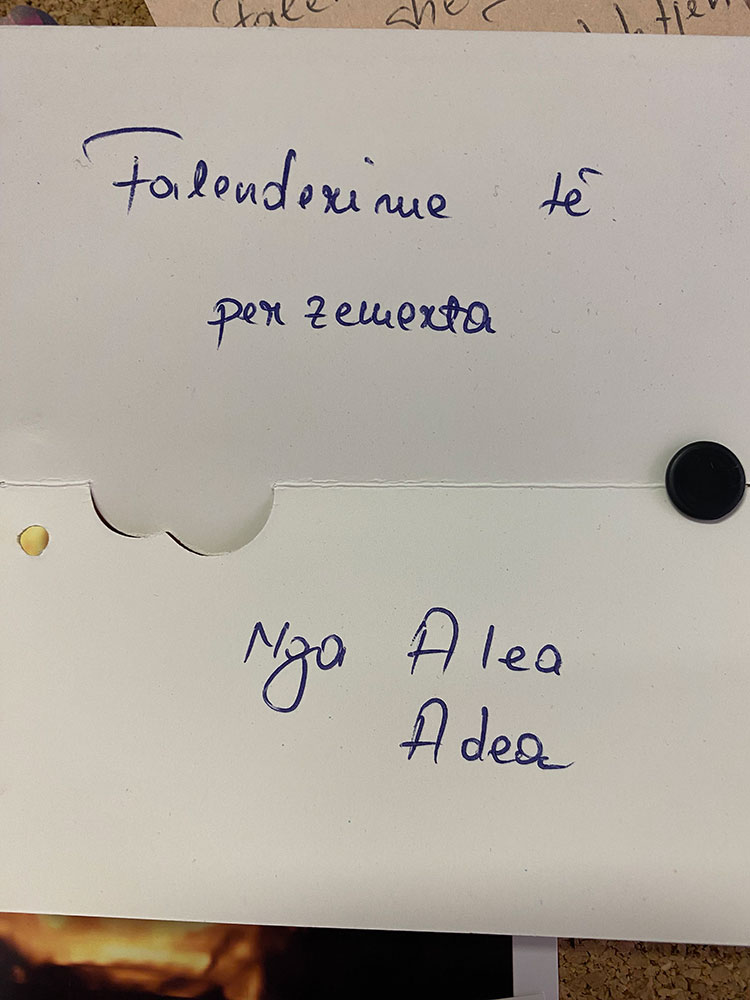 Falenderime të
per zemerta
Nga Alea
Adea